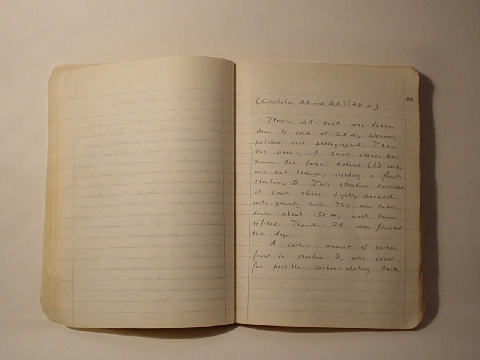 Trench 2A-East was taken
down to rock at 2.8 m, cleaned,
polished, and photographed. Then
the packing of small stones be-
tween the large natural (?) rocks
was cut through, yielding a fourth
stratum, D. This stratum consisted
of small stones tightly packed
with gravelly soil. This was taken
down about .50 m, and then
refilled. Trench 2A was finished
this day.
A certain amount of carbon,
found in stratum D, was saved
for possible carbon-dating back